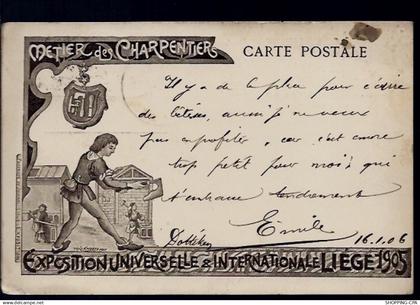 METIER des CHARPENTIERS
CARTE POSTALE
Il y a de la place pour écrire
des bêtises, aussi je ne veux
pas en profiter, car c'est encore
trop petit pour moi qui
tendrement
Emile
16.1.06
EXPOSITION UNIVERSELLE & INTERNATIONALE LIÈGE 1905